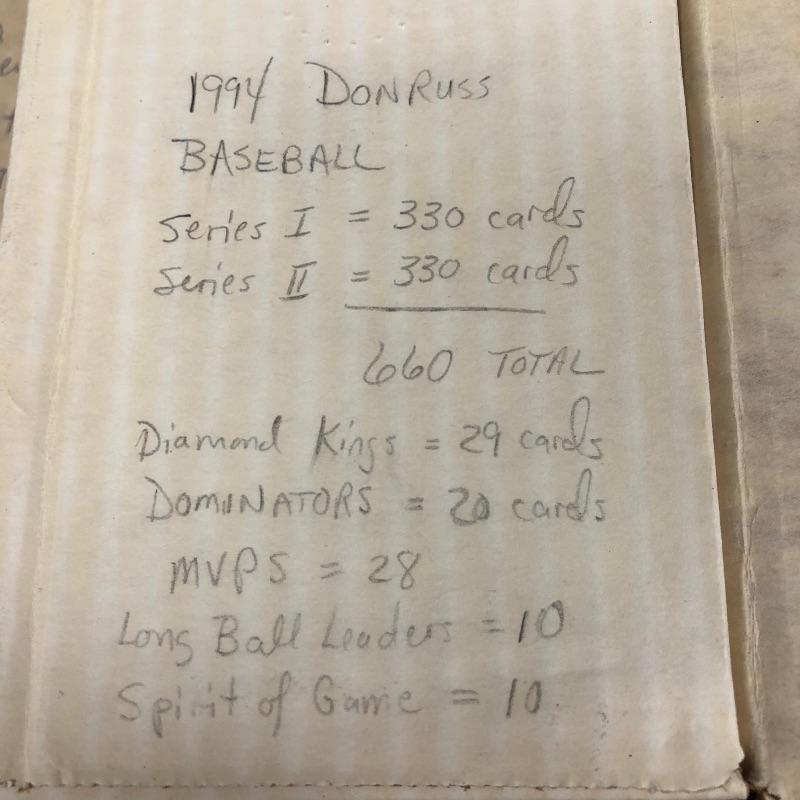 1994 DONRUSS
BASEBALL
Series I = 330 cards
Series II = 330 cards
660 TOTAL
Diamond Kings = 29 cards
DOMINATORS = 20 cards
MVPS = 28
Long Ball Leaders = 10
Spirit of Game = 10